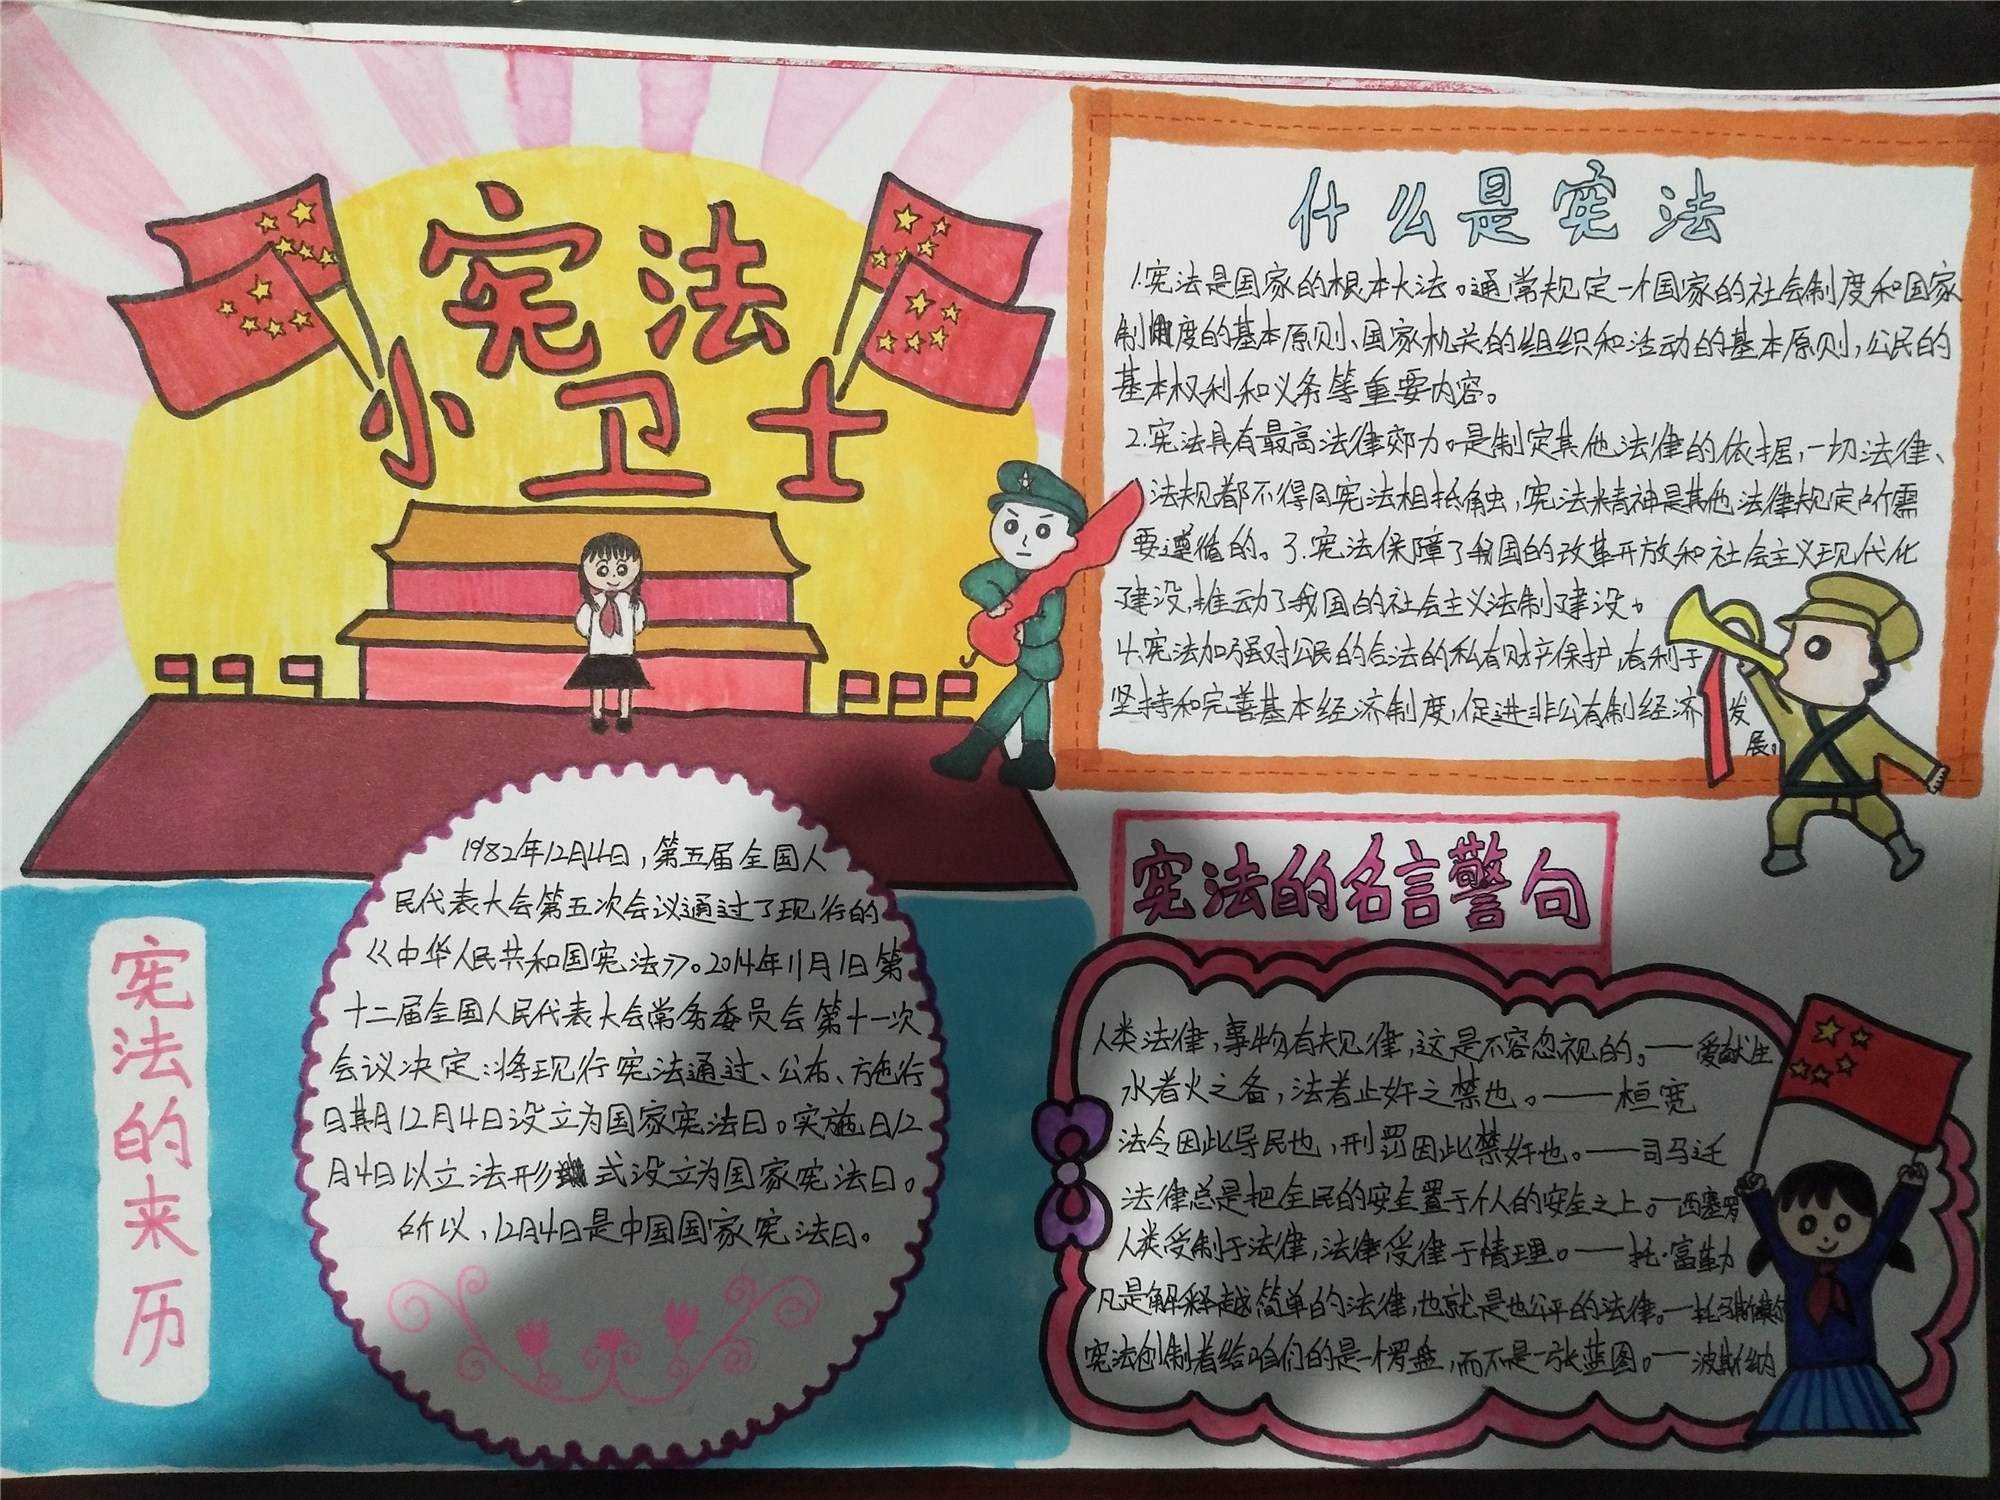 宪法
小卫士
什么是宪法
1.宪法是国家的根本大法。通常规定一个国家的社会制度和国家
制度的基本原则、国家机关的组织和活动的基本原则，公民的
基本权利和义务等重要内容。
2.宪法具有最高法律郊力。是制定其他法律的依据，一切法律、
法规都不得同宪法相抵触，宪法精神是其他法律规定所需
要遵循的。3.宪法保障了我国的改革开放和社会主义现代化
建设，推动了我国的社会主义法制建设。
4.宪法加强对公民的合法的私有财产保护，有利于
坚持和完善基本经济制度，促进非公有制经济发
展。
1982年12月4日，第五届全国人
民代表大会第五次会议通过了现行的
《中华人民共和国宪法》。2014年11月1日第
十二届全国人民代表大会常务委员会第十一次
会议决定：将现行宪法通过、公布、方色行
日期12月4日设立为国家宪法日。实施日12
月4日以立法形式设立为国家宪法日。
所以，12月4日是中国国家宪法日。
宪法的来历
宪法的名言警句
人类法律，事物有规律，这是不容忽视的。——爱献生
水者火之备，法者止奸之禁也。——桓宽
法令因此导民也，刑罚因此禁奸也。——司马迁
法律总是把全民的安全置于个人的安全之上。—西塞罗
人类受制于法律，法律受律于情理。——托·富勒
凡是解释越简单的法律，也就是也公平的法律。—托
宪法创制者给咱们的是一个罗盘，而不是一张蓝图。—波斯纳